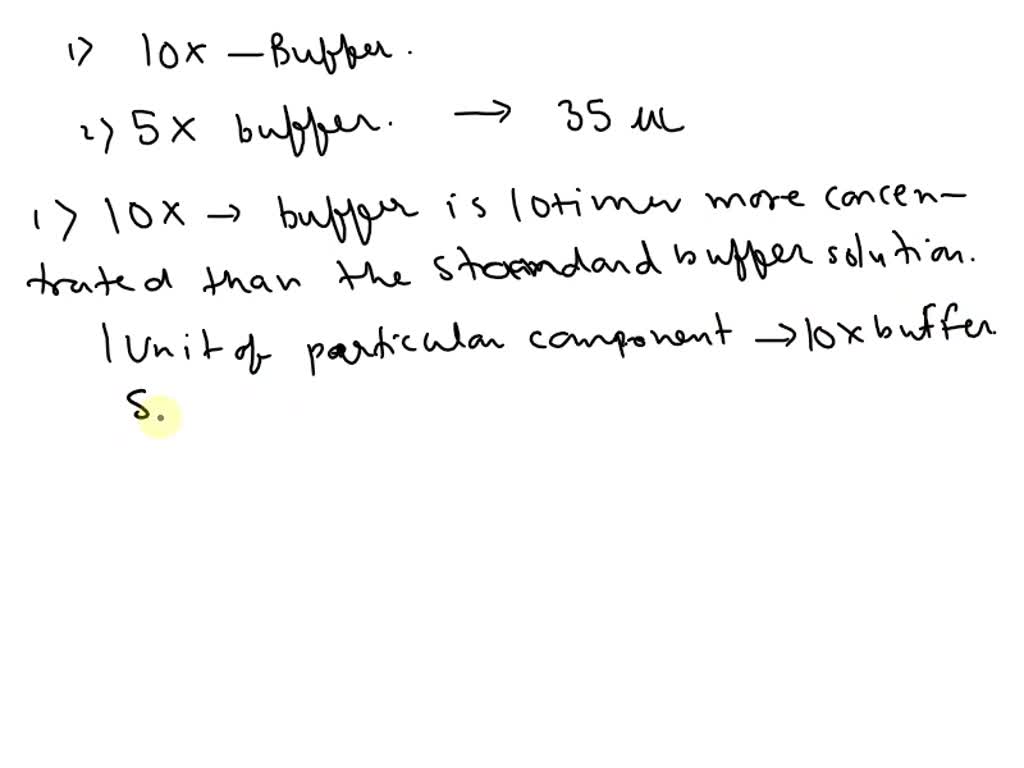 1> 10x - Buffer.
2> 5x buffer. → 35 uL
1> 10x → buffer is 10 timer more concen-
trated than the standard buffer solution.
1 Unit of particular component → 10x buffer
S.